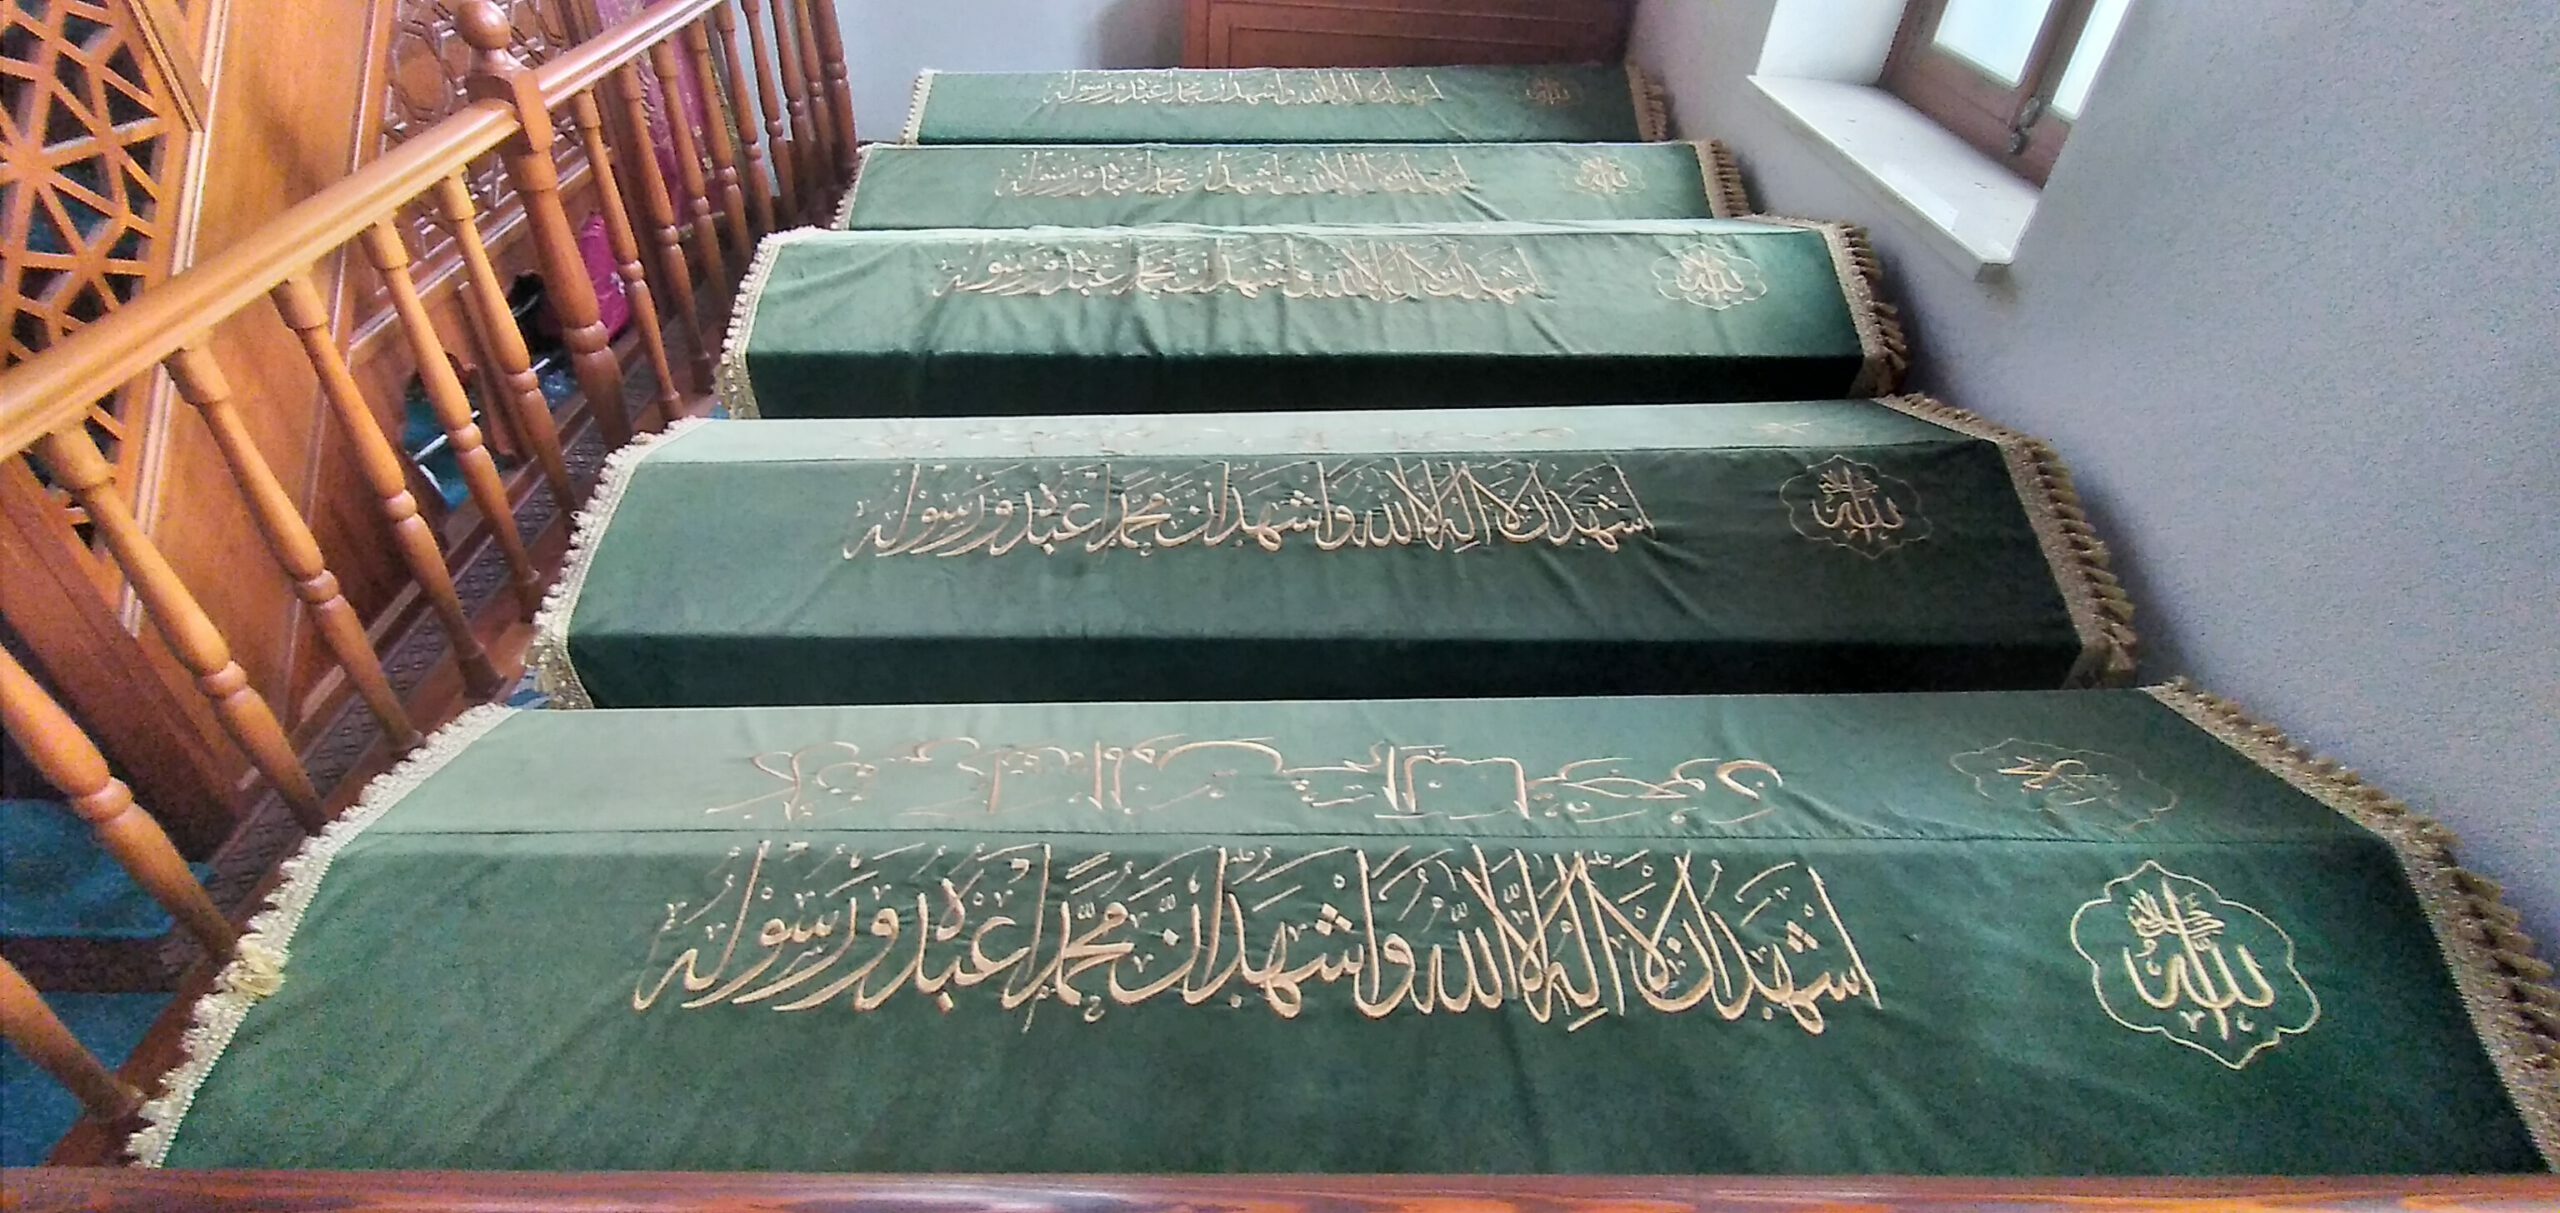 اَشْهَدُ اَنْ لَا اِلٰهَ اِلَّا اللّٰهُ وَاَشْهَدُ اَنَّ مُحَمَّدًا عَبْدُهُ وَرَسُولُهُ
الله
اَشْهَدُ اَنْ لَا اِلٰهَ اِلَّا اللّٰهُ وَاَشْهَدُ اَنَّ مُحَمَّدًا عَبْدُهُ وَرَسُولُهُ
الله
اَشْهَدُ اَنْ لَا اِلٰهَ اِلَّا اللّٰهُ وَاَشْهَدُ اَنَّ مُحَمَّدًا عَبْدُهُ وَرَسُولُهُ
الله جل جلاله
اَشْهَدُ اَنْ لَا اِلٰهَ اِلَّا اللّٰهُ وَاَشْهَدُ اَنَّ مُحَمَّدًا عَبْدُهُ وَرَسُولُهُ
الله جل جلاله
اَشْهَدُ اَنْ لَا اِلٰهَ اِلَّا اللّٰهُ وَاَشْهَدُ اَنَّ مُحَمَّدًا عَبْدُهُ وَرَسُولُهُ
الله جل جلاله